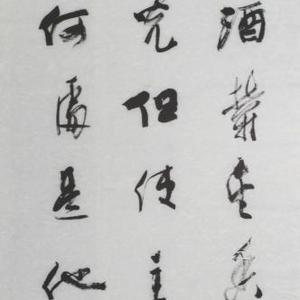 酒鬱金香
光但使主
何處是他